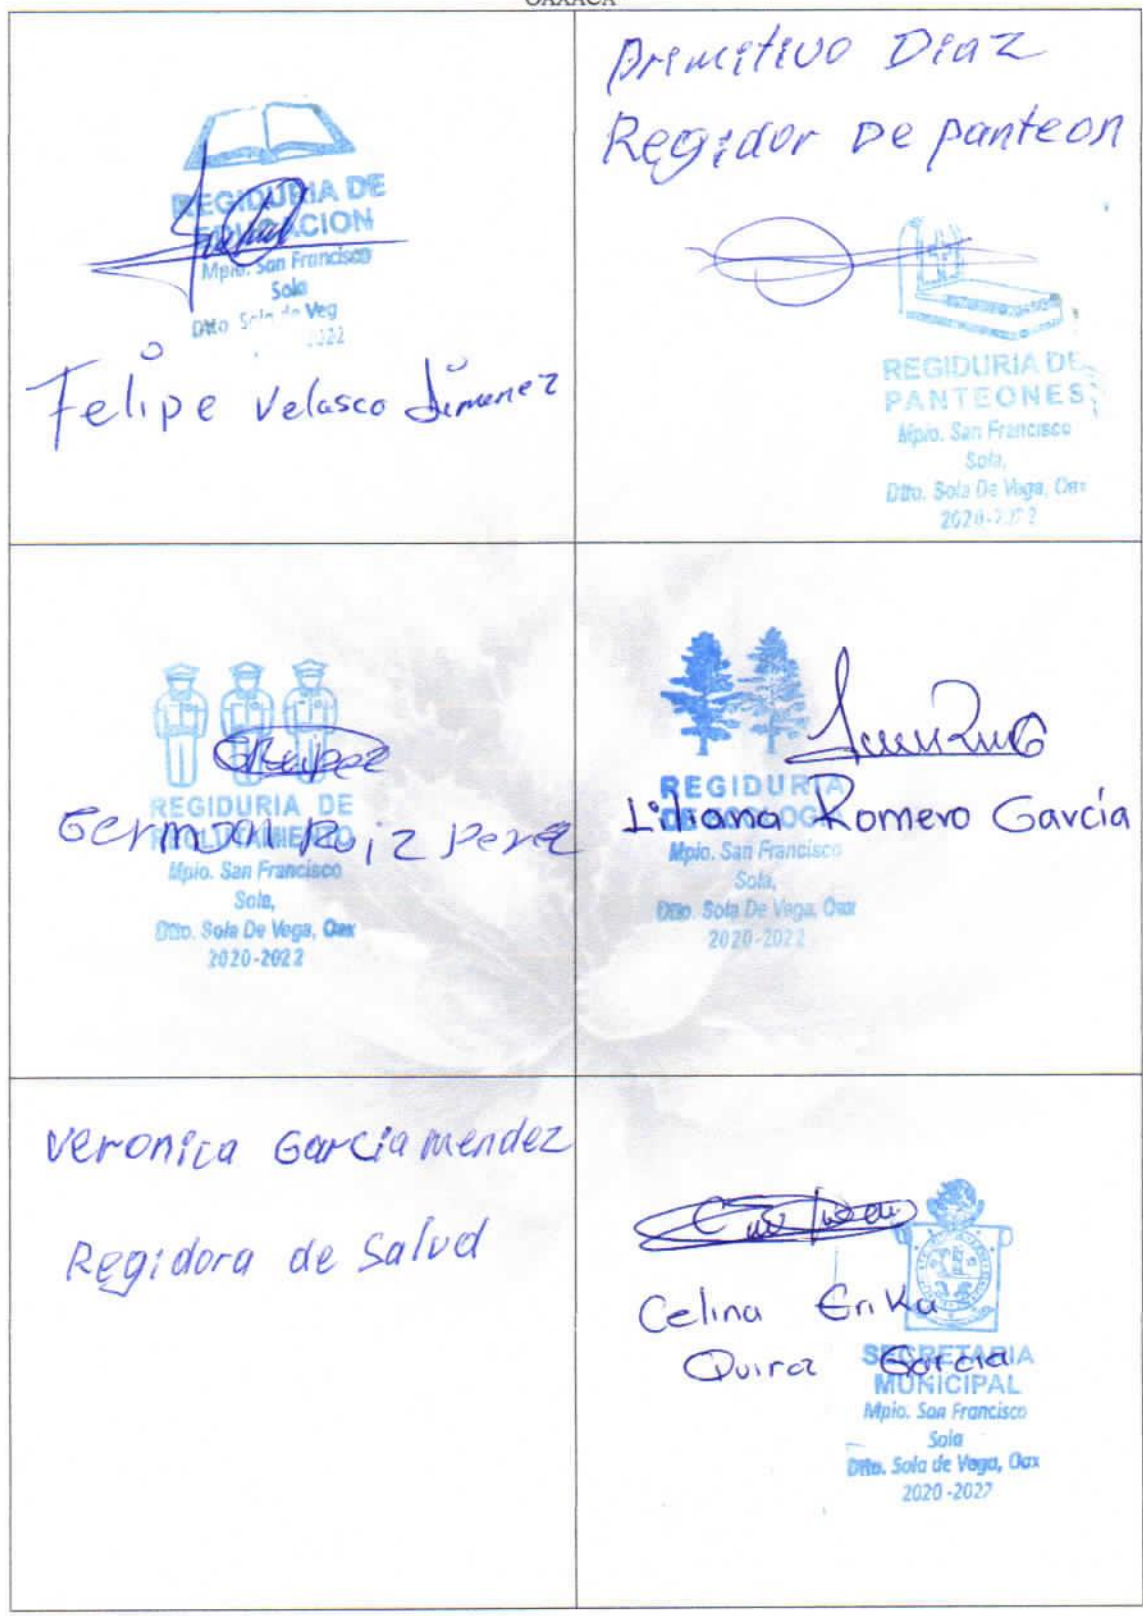 OAXACA
REGIDURIA DE
EDUCACION
Mpio. San Francisco
Sola
Dtto Sola de Veg
2022
Felipe Velasco Jimenez
Primitivo Diaz
Regidor De panteon
REGIDURIA DE
PANTEONES
Mpio. San Francisco
Sola,
Dtto. Sola De Vega, Oax
2020-2022
REGIDURIA DE
German Ruiz Perez
Mpio. San Francisco
Sola,
Dtto. Sola De Vega, Oax
2020-2022
REGIDURIA
DE ECOLOGIA
Liliana Romero García
Mpio. San Francisco
Sola,
Dtto. Sola De Vega, Oax
2020-2022
Veronica Garcia mendez
Regidora de Salud
Celina Erika
Quiroz Garcia
SECRETARIA
MUNICIPAL
Mpio. San Francisco
Sola
Dtto. Sola de Vega, Oax
2020-2022